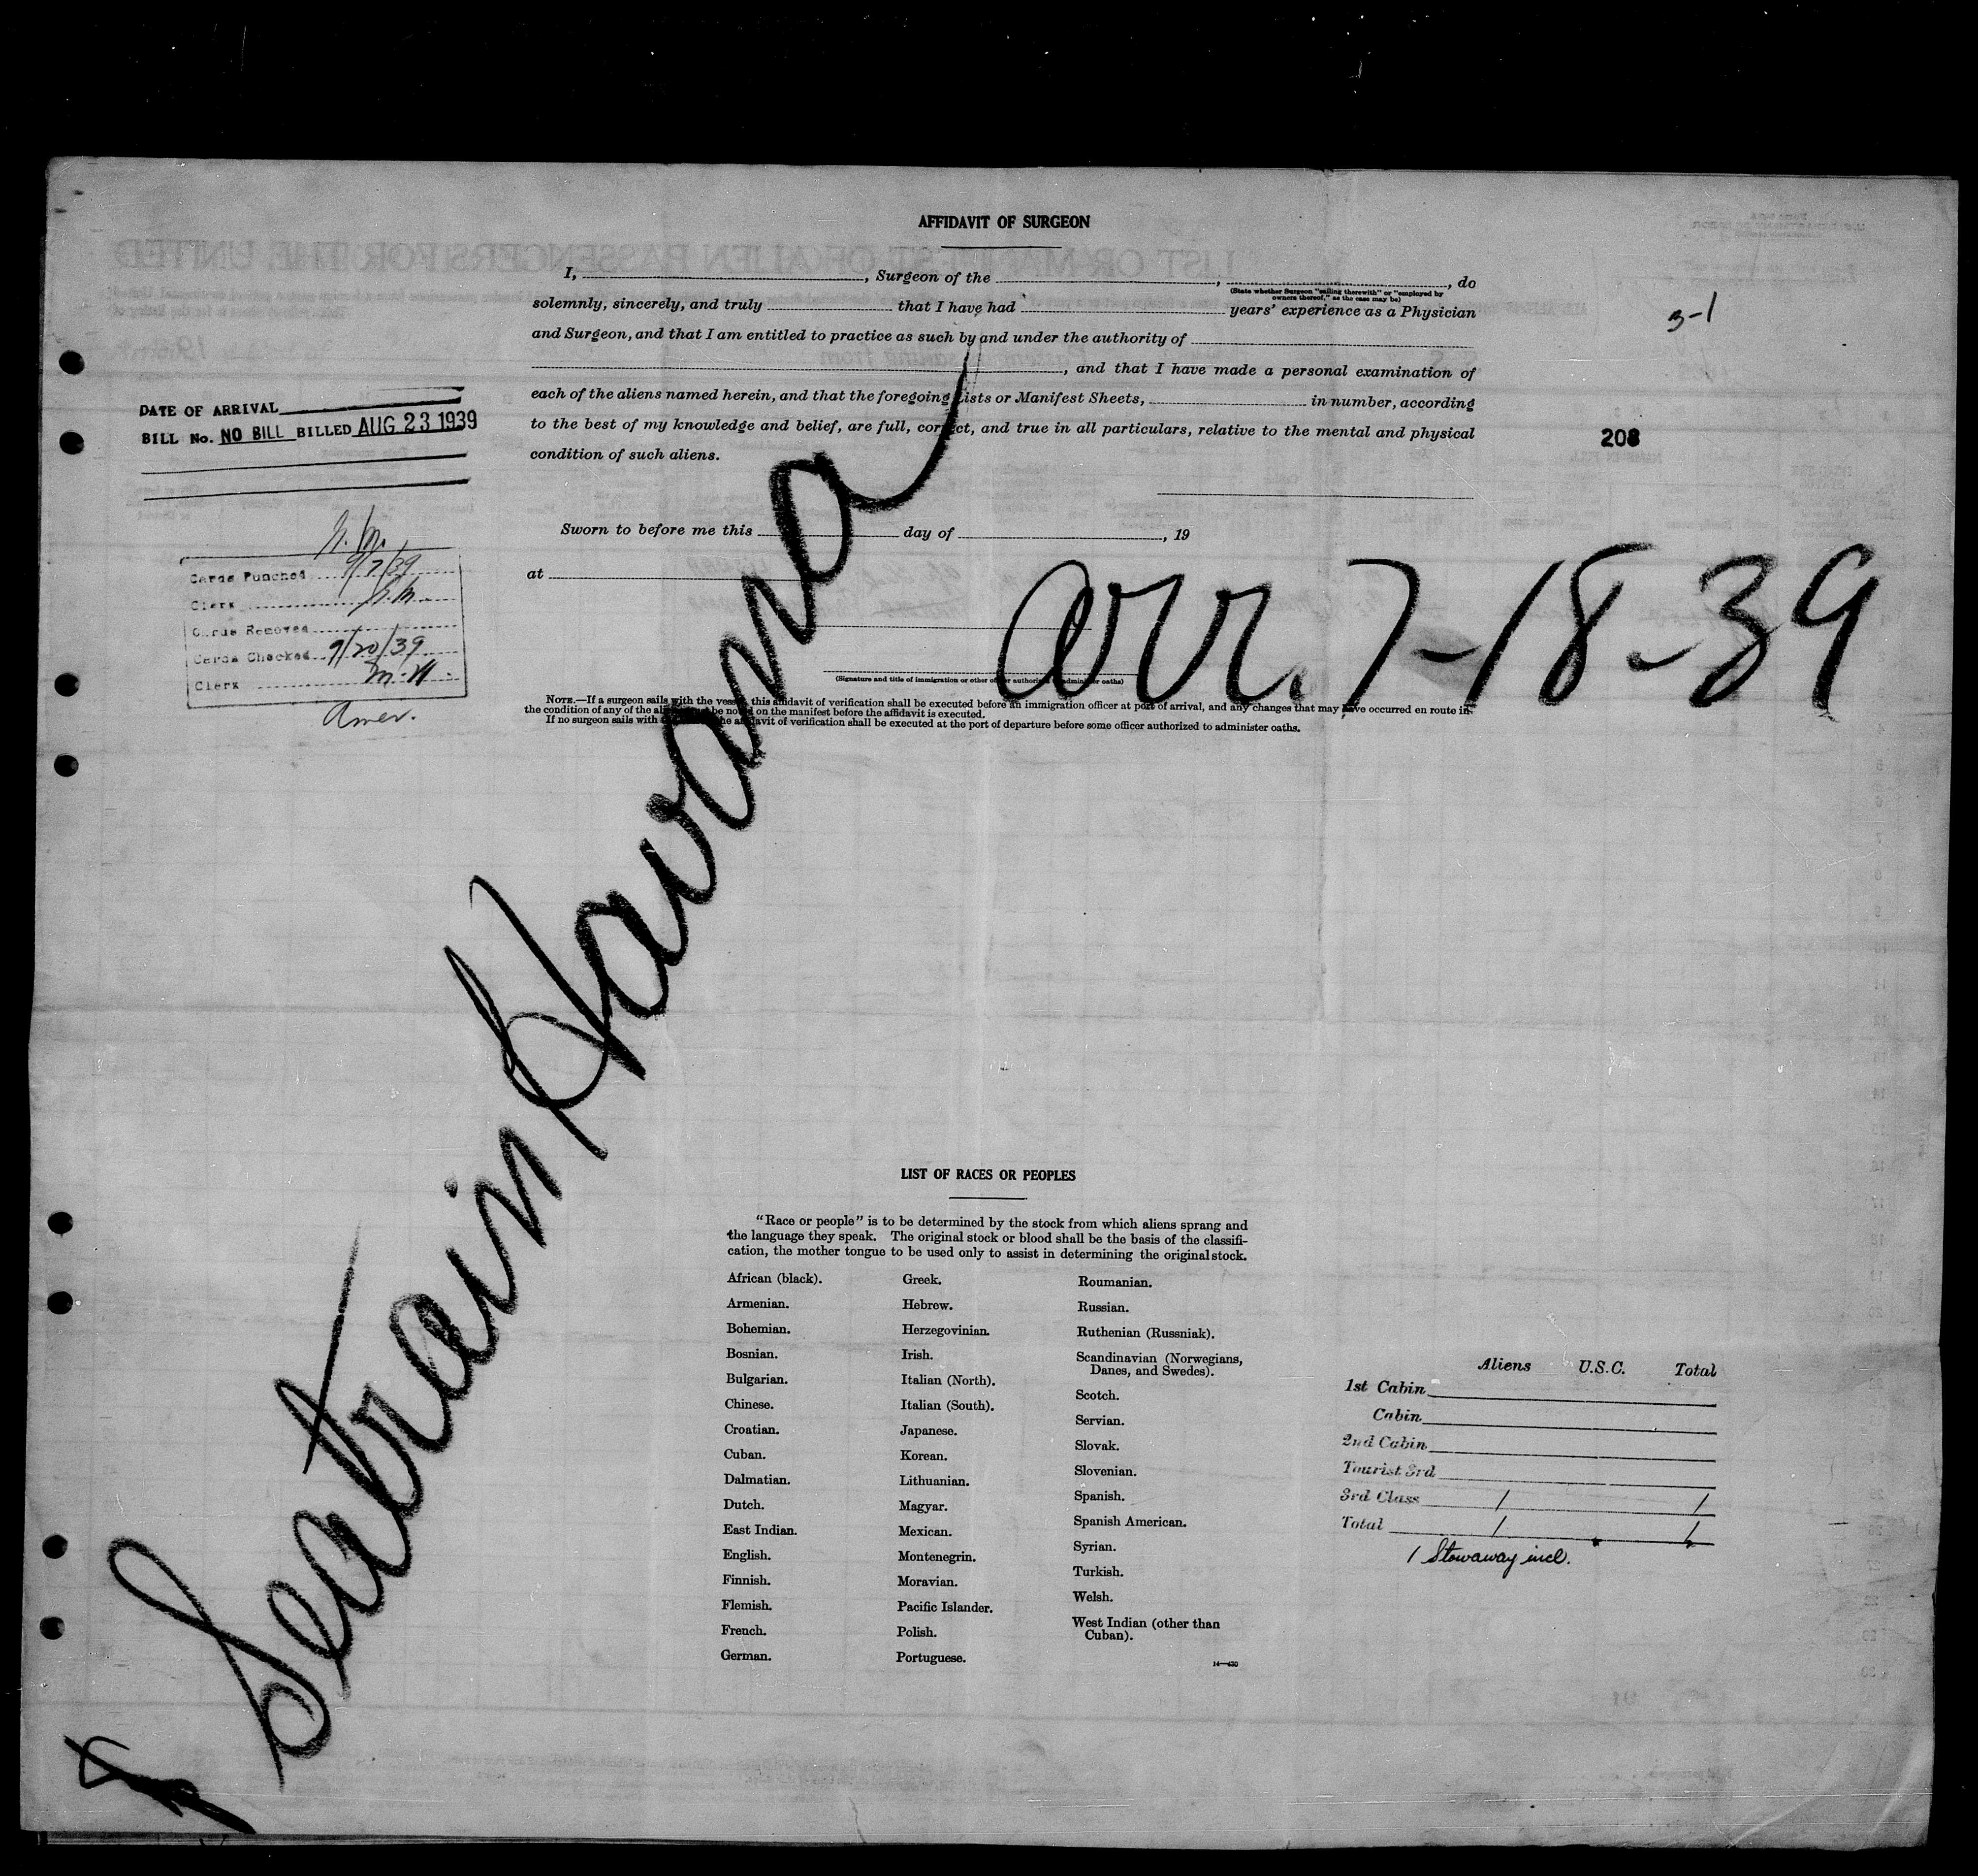 AFFIDAVIT OF SURGEON
I, , Surgeon of the , , do
(State whether Surgeon "sailing therewith" or "employed by
owners thereof," as the case may be)
solemnly, sincerely, and truly that I have had years' experience as a Physician
and Surgeon, and that I am entitled to practice as such by and under the authority of
, and that I have made a personal examination of
each of the aliens named herein, and that the foregoing Lists or Manifest Sheets, in number, according
to the best of my knowledge and belief, are full, correct, and true in all particulars, relative to the mental and physical
condition of such aliens.
3-1
208
DATE OF ARRIVAL
BILL No. NO BILL BILLED AUG 23 1939
Sworn to before me this day of , 19
at
(Signature and title of immigration or other officer authorized to administer oaths)
NOTE.—If a surgeon sails with the vessel, this affidavit of verification shall be executed before an immigration officer at port of arrival, and any changes that may have occurred en route in
the condition of any of the aliens must be noted on the manifest before the affidavit is executed.
If no surgeon sails with the vessel the affidavit of verification shall be executed at the port of departure before some officer authorized to administer oaths.
Cards Punched 9/7/39
Clerk
Cards Removed
Cards Checked 9/20/39
Clerk M.H.
Amer.
arr. 7-18-39
Seatrain Havana
LIST OF RACES OR PEOPLES
"Race or people" is to be determined by the stock from which aliens sprang and
the language they speak. The original stock or blood shall be the basis of the classifi-
cation, the mother tongue to be used only to assist in determining the original stock.
African (black).
Armenian.
Bohemian.
Bosnian.
Bulgarian.
Chinese.
Croatian.
Cuban.
Dalmatian.
Dutch.
East Indian.
English.
Finnish.
Flemish.
French.
German.
Greek.
Hebrew.
Herzegovinian.
Irish.
Italian (North).
Italian (South).
Japanese.
Korean.
Lithuanian.
Magyar.
Mexican.
Montenegrin.
Moravian.
Pacific Islander.
Polish.
Portuguese.
Roumanian.
Russian.
Ruthenian (Russniak).
Scandinavian (Norwegians,
Danes, and Swedes).
Scotch.
Servian.
Slovak.
Slovenian.
Spanish.
Spanish American.
Syrian.
Turkish.
Welsh.
West Indian (other than
Cuban).
14—430
Aliens U.S.C. Total
1st Cabin
Cabin
2nd Cabin
Tourist 3rd
3rd Class 1 1
Total 1 1
1 Stowaway incl.